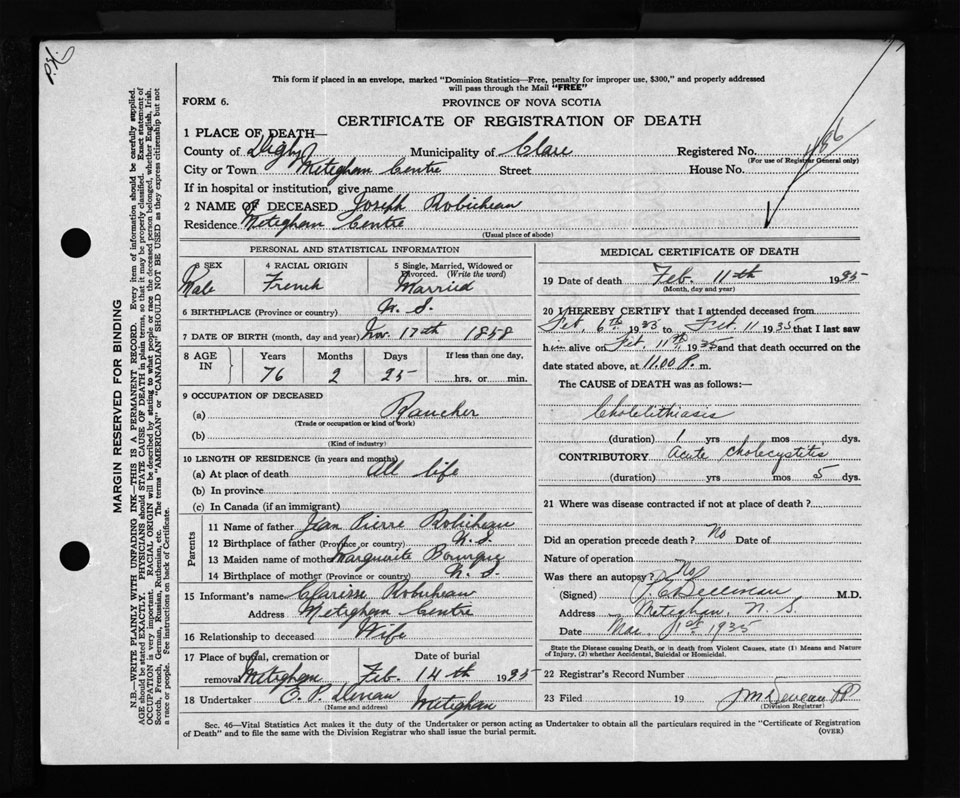 This form if placed in an envelope, marked "Dominion Statistics—Free, penalty for improper use, $300," and properly addressed
will pass through the Mail "FREE"
FORM 6.
PROVINCE OF NOVA SCOTIA
CERTIFICATE OF REGISTRATION OF DEATH
1 PLACE OF DEATH—
County of Digby Municipality of Clare Registered No.
(For use of Registrar General only)
City or Town Meteghan Centre Street House No.
If in hospital or institution, give name
2 NAME OF DECEASED Joseph Robicheau
Residence Meteghan Centre
(Usual place of abode)
PERSONAL AND STATISTICAL INFORMATION
3 SEX 4 RACIAL ORIGIN 5 Single, Married, Widowed or Divorced. (Write the word)
Male French Married
6 BIRTHPLACE (Province or country) N. S.
7 DATE OF BIRTH (month, day and year) Nov. 17th 1858
8 AGE IN Years Months Days If less than one day,
76 2 25 hrs. or min.
9 OCCUPATION OF DECEASED
(a) Rancher
(Trade or occupation or kind of work)
(b)
(Kind of industry)
10 LENGTH OF RESIDENCE (in years and months)
(a) At place of death All life
(b) In province
(c) In Canada (if an immigrant)
Parents
11 Name of father Jean Pierre Robicheau
12 Birthplace of father (Province or country) N. S.
13 Maiden name of mother Marguerite
14 Birthplace of mother (Province or country) N. S.
15 Informant's name Clarisse Robicheau
Address Meteghan Centre
16 Relationship to deceased Wife
17 Place of burial, cremation or removal Date of burial
Meteghan Feb. 14th 1935
18 Undertaker O. P. Meteghan
(Name and address)
MEDICAL CERTIFICATE OF DEATH
19 Date of death Feb. 11th 1935
(Month, day and year)
20 I HEREBY CERTIFY that I attended deceased from
Feb. 6th 1935 to Feb. 11 1935 that I last saw
him alive on Feb. 11th 1935 and that death occurred on the
date stated above, at 11.00 P. m.
The CAUSE of DEATH was as follows:—
Cholelithiasis
(duration) 1 yrs mos dys.
CONTRIBUTORY Acute cholecystitis
(duration) yrs mos 5 dys.
21 Where was disease contracted if not at place of death?
Did an operation precede death? No Date of
Nature of operation
Was there an autopsy? No
(Signed) M.D.
Address Meteghan, N. S.
Date Mar. 1st 1935
State the Disease causing Death, or in death from Violent Causes, state (1) Means and Nature of Injury, (2) whether Accidental, Suicidal or Homicidal.
22 Registrar's Record Number
23 Filed 19
(Division Registrar)
Sec. 46—Vital Statistics Act makes it the duty of the Undertaker or person acting as Undertaker to obtain all the particulars required in the "Certificate of Registration
of Death" and to file the same with the Division Registrar who shall issue the burial permit.
(OVER)
MARGIN RESERVED FOR BINDING
N.B.—WRITE PLAINLY WITH UNFADING INK—THIS IS A PERMANENT RECORD. Every item of information should be carefully supplied.
AGE should be stated EXACTLY. PHYSICIANS should STATE CAUSE OF DEATH in plain terms, so that it may be properly classified. Exact statement of
OCCUPATION is very important. RACIAL ORIGIN will be described by stating to what people or race the deceased person belonged, whether English, Irish,
Scotch, French, German, Russian, Ruthenian, etc. The terms "AMERICAN" or "CANADIAN" SHOULD NOT BE USED as they express citizenship but not
a race or people. See instructions on back of Certificate.